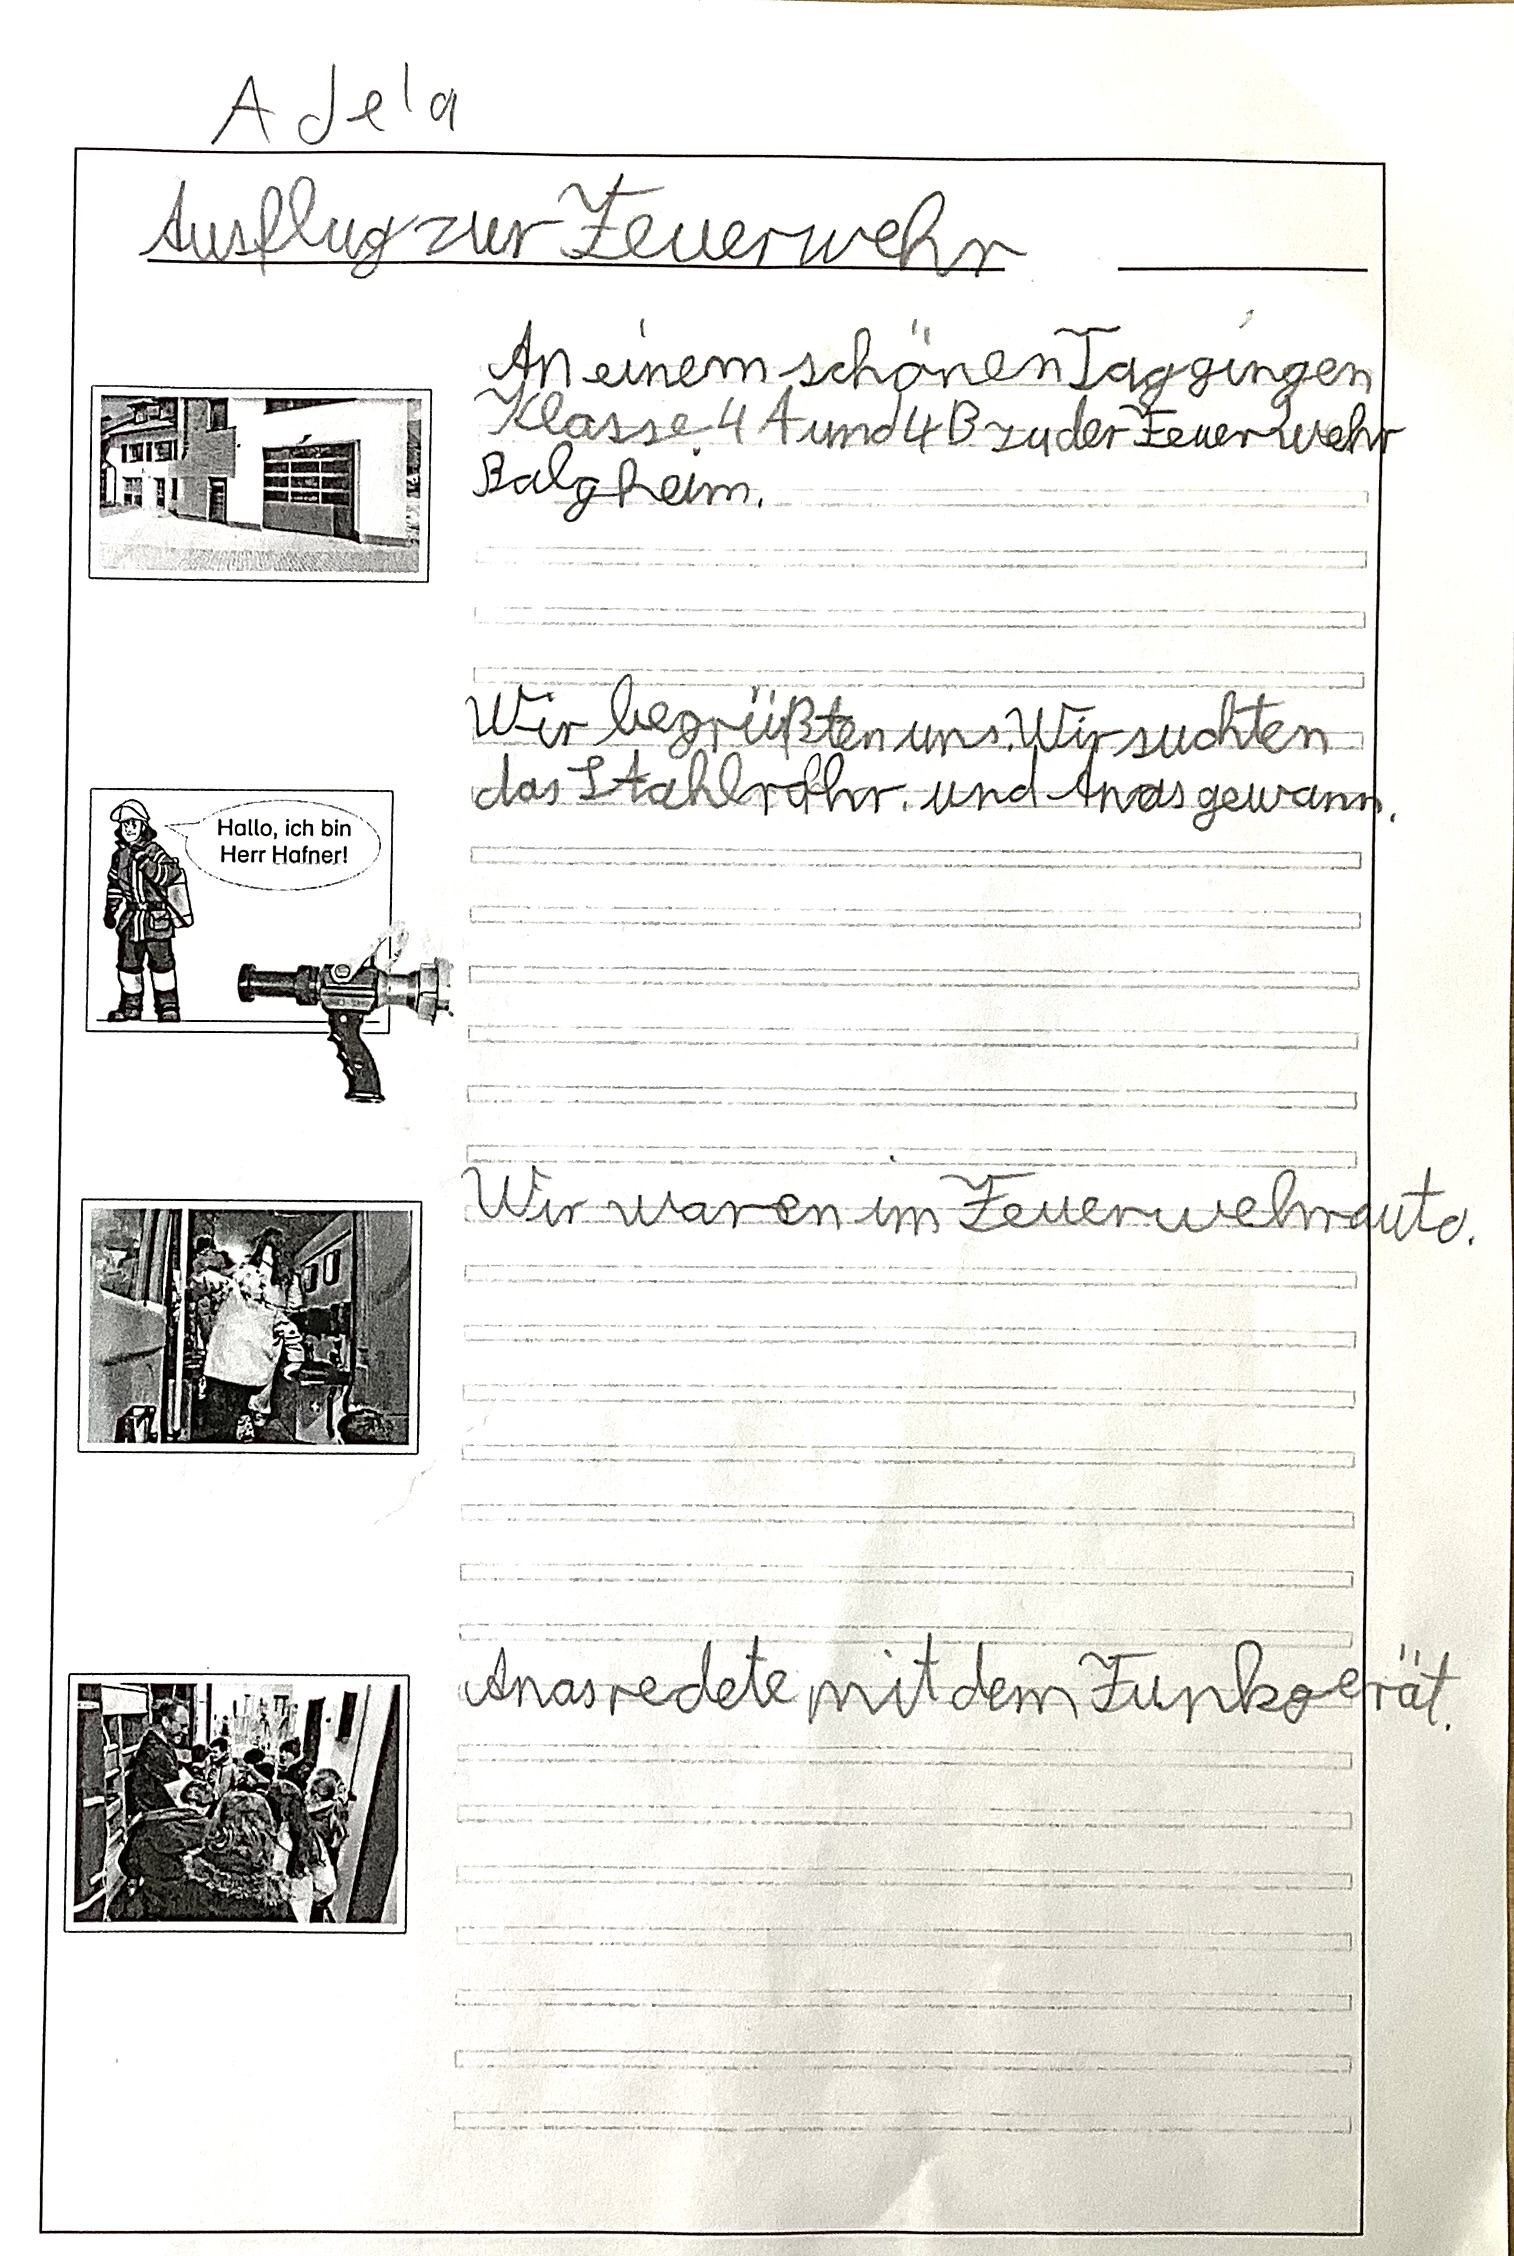 Adela
Ausflug zur Feuerwehr
An einem schönen Tag gingen
Klasse 4 A und 4 B zu der Feuerwehr
Balgheim.
Wir begrüßten uns. Wir suchten
das Stahlrohr. und Anas gewann.
Hallo, ich bin
Herr Hafner!
Wir waren im Feuerwehrauto.
Anas redete mit dem Funkgerät.